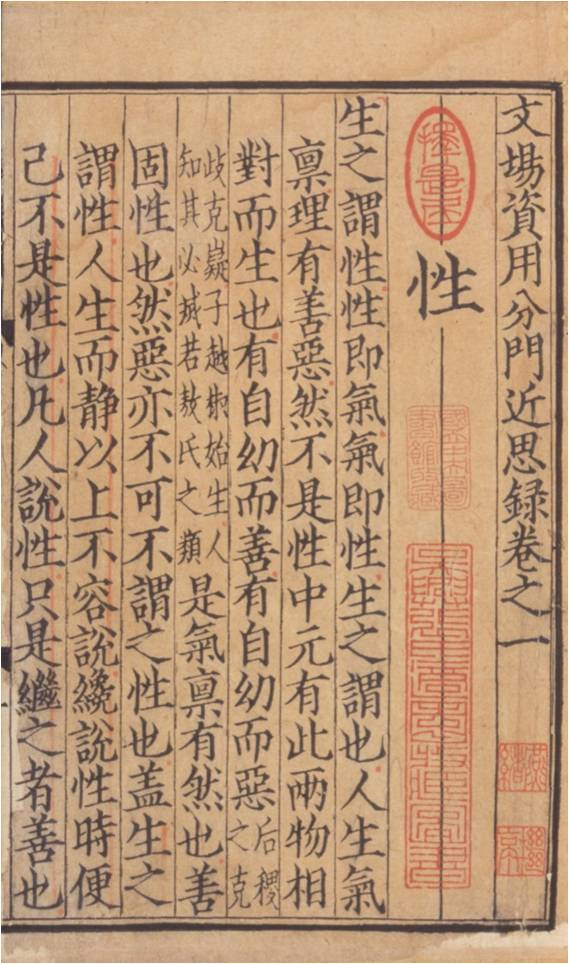 文塲資用分門近思録卷之一
擇是居
性
生之謂性性即氣氣即性生之謂也人生氣
禀理有善惡然不是性中元有此兩物相
對而生也有自幼而善有自幼而惡后稷之克
歧克嶷子越椒始生人知其必滅若敖氏之類是氣禀有然也善
固性也然惡亦不可不謂之性也盖生之
謂性人生而静以上不容說纔說性時便
已不是性也凡人說性只是繼之者善也